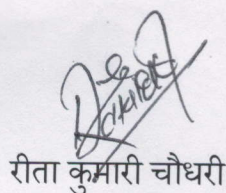 रीता कुमारी चौधरी